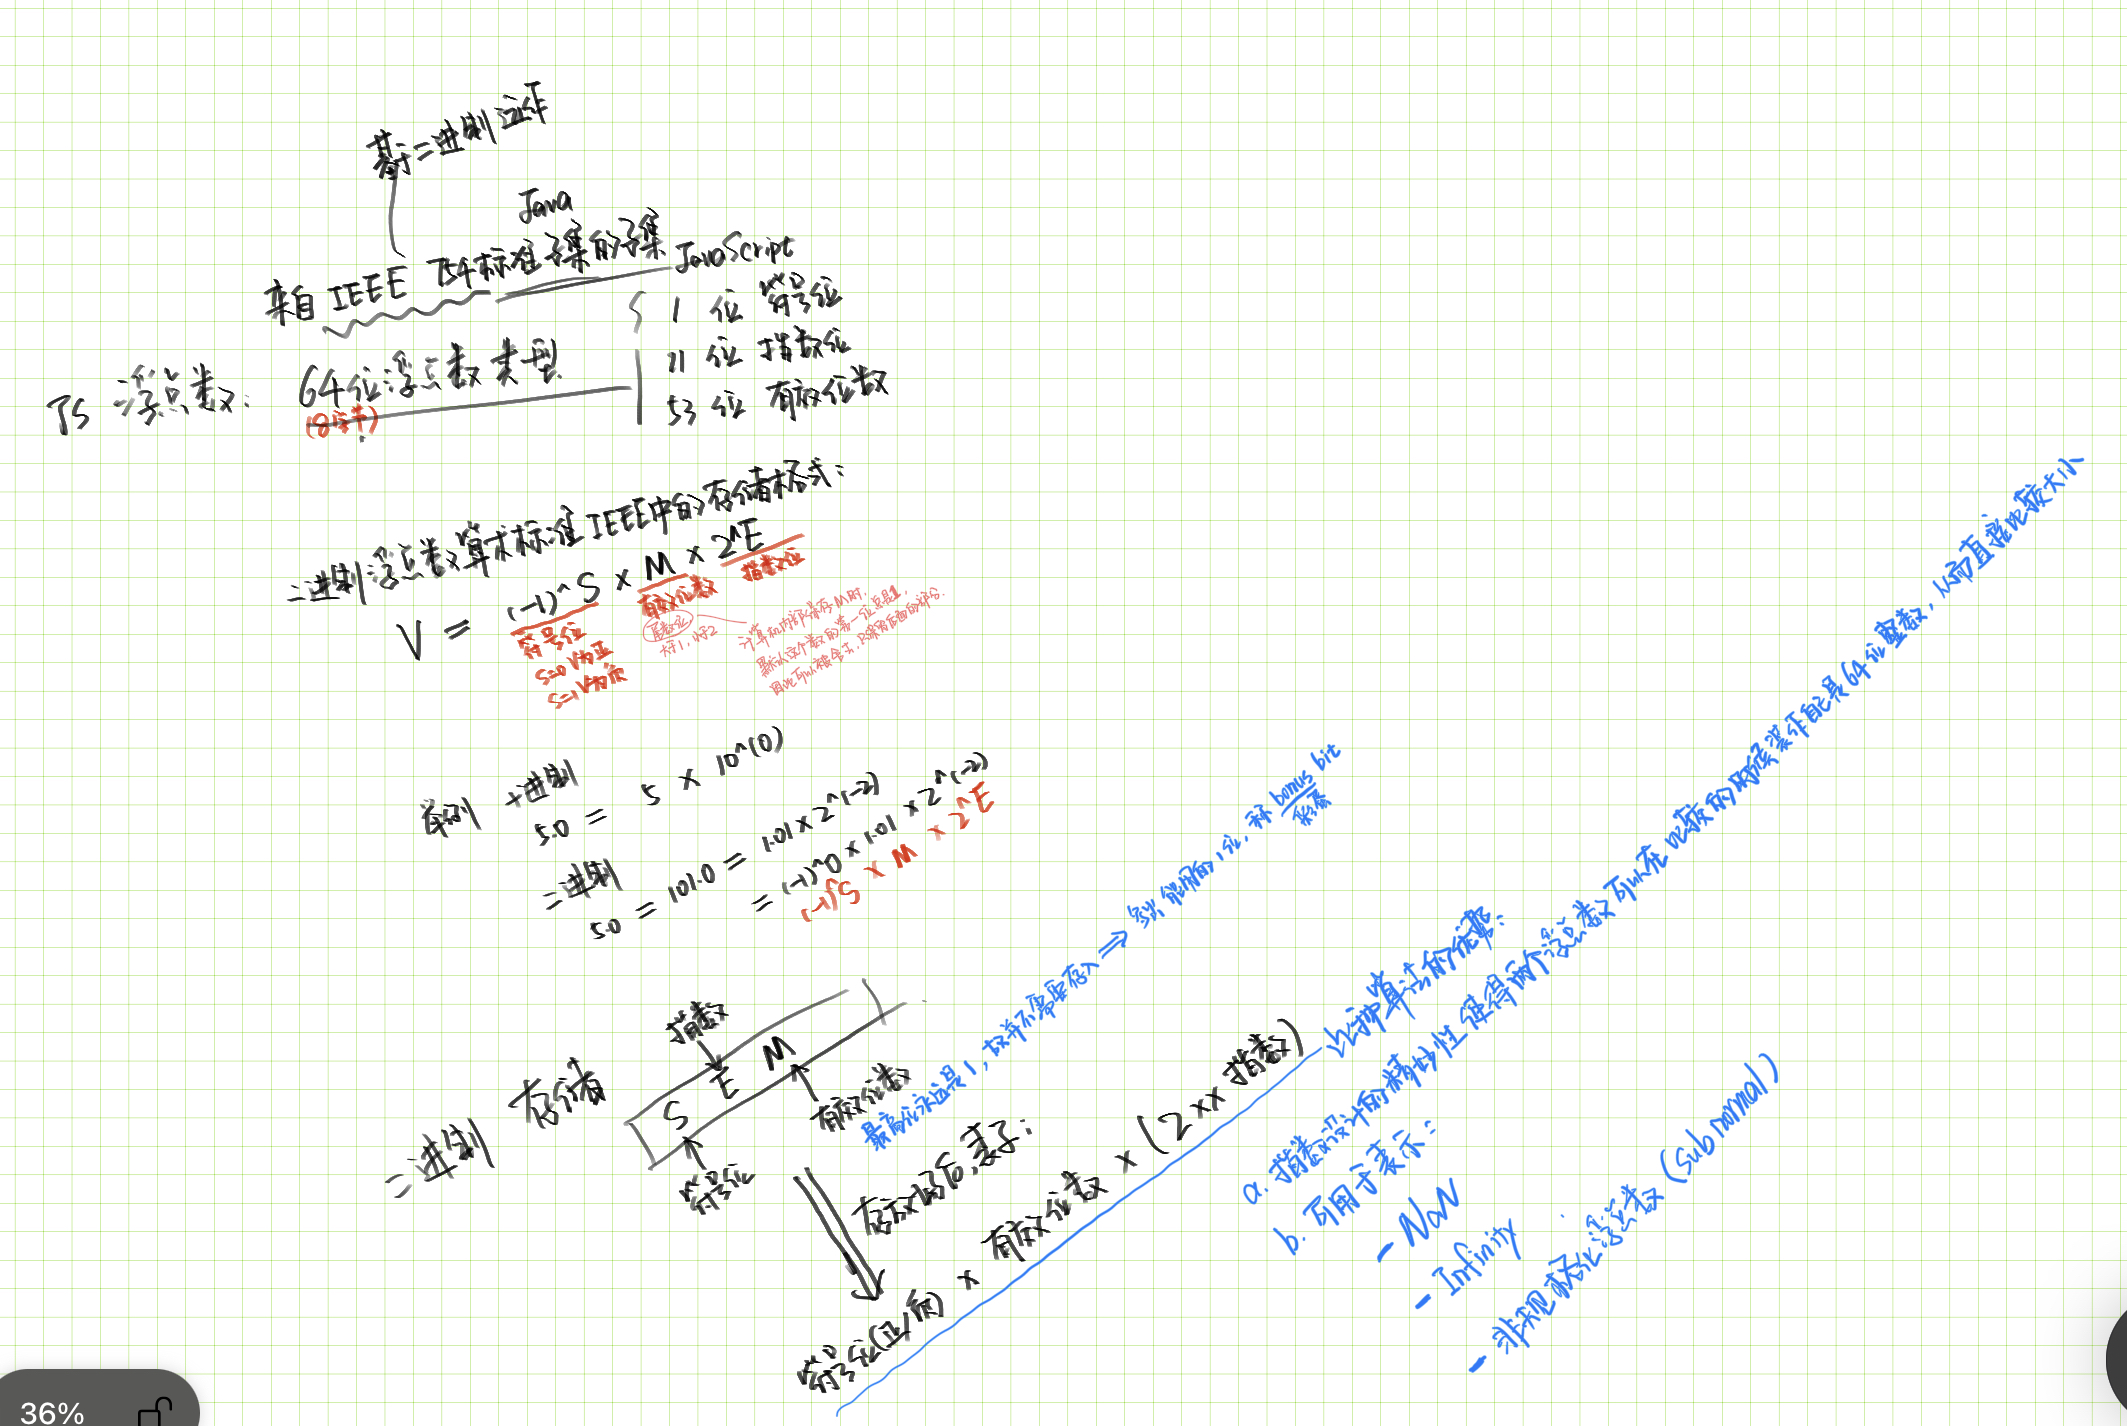 基于二进制运作
Java
来自 IEEE 754标准子集的子集 JavaScript
1 位 符号位
11 位 指数位
53 位 有效位数
JS 浮点数: 64位浮点数类型
(8字节)
二进制浮点数算术标准IEEE中的存储格式:
V = (-1)^S × M × 2^E
符号位
S=0 V为正
S=1 V为负
有效位数
尾数位
大于1, 小于2
指数位
计算机内部保存M时,
默认这个数的第一位总是1,
因此可以被舍去, 只保留后面的部分.
举例 十进制
5.0 = 5 × 10^(0)
二进制
5.0 = 101.0 = 1.01 × 2^(-2)
= (-1)^0 × 1.01 × 2^(-2)
(-1)^S × M × 2^E
二进制 存储
指数
S E M
符号位
有效位数
最高位永远是1, 故并不需要存入 ⇒ 多出能用的1位, 称 bonus bit
彩蛋
存放以后,表示:
符号位(正/负) × 有效位数 × (2 ×× 指数)
此种算法的优势:
a. 指数设计的精妙性 使得两个浮点数可以在比较的时候装作自己是64位整数, 从而直接比较大小
b. 可用于表示:
- NaN
- Infinity
- 非规范化浮点数 (Subnormal)
36%